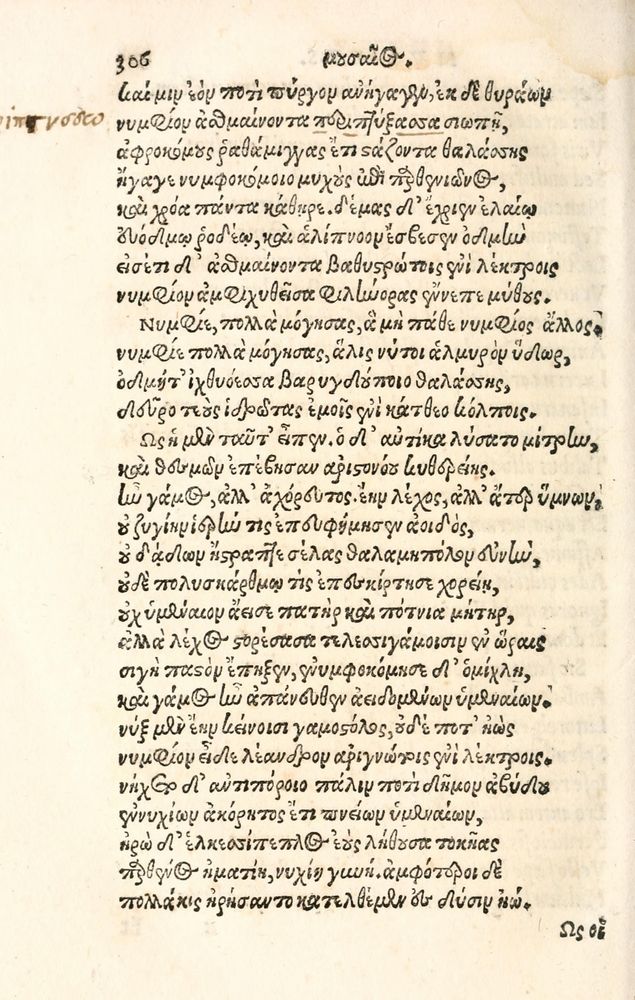 306 μουσαῖος.
καί μιν ἑὸν ποτὶ πύργον ἀνήγαγεν, ἐκ δὲ θυράων
νυμφίον ἀσθμαίνοντα περιπτύξασα σιωπῇ,
ἀφροκόμους ῥαθάμιγγας ἔτι στάζοντα θαλάσσης
ἤγαγε νυμφοκόμοιο μυχοὺς ἐπὶ παρθενεῶνος,
καὶ χρόα πάντα κάθηρε. δέμας δ' ἔχριεν ἐλαίῳ
εὐόδμῳ ῥοδέῳ, καὶ ἁλίπνοον ἔσβεσεν ὀδμὴν
εἰσέτι δ' ἀσθμαίνοντα βαθυστρώτοις ἐνὶ λέκτροις
νυμφίον ἀμφιχυθεῖσα φιλήνορας ἔννεπε μύθους.
Νυμφίε, πολλὰ μόγησας, ἃ μὴ πάθε νυμφίος ἄλλος,
νυμφίε πολλὰ μόγησας, ἅλις νύ τοι ἁλμυρὸν ὕδωρ,
ὀδμή τ' ἰχθυόεσσα βαρυγδούποιο θαλάσσης,
δεῦρο τεοὺς ἱδρῶτας ἐμοῖς ἐνὶ κάτθεο κόλποις.
Ὣς ἡ μὲν ταῦτ' εἶπεν. ὁ δ' αὐτίκα λύσατο μίτρην,
καὶ θεσμῶν ἐπέβησαν ἀριστονόου κυθερείης.
ἦν γάμος, ἀλλ' ἀχόρευτος. ἔην λέχος, ἀλλ' ἄτερ ὕμνων,
οὐ ζυγίην ἱερήν τις ἐπευφήμησεν ἀοιδός,
οὐ δᾴδων ἤστραπτε σέλας θαλαμηπόλον εὐνήν,
οὐδὲ πολυσκάρθμῳ τις ἐπεσκίρτησε χορείῃ,
οὐχ ὑμέναιον ἄεισε πατὴρ καὶ πότνια μήτηρ,
ἀλλὰ λέχος στορέσασα τελεσσιγάμοισιν ἐν ὥραις
σιγὴ παστὸν ἔπηξεν, ἐνυμφοκόμησε δ' ὁμίχλη,
καὶ γάμος ἦν ἀπάνευθεν ἀειδομένων ὑμεναίων.
νὺξ μὲν ἔην κείνοισι γαμοστόλος, οὐδέ ποτ' ἠὼς
νυμφίον εἶδε λέανδρον ἀριγνώτοις ἐνὶ λέκτροις.
νήχετο δ' ἀντιπόροιο πάλιν ποτὶ δῆμον ἀβύδου
ἐννυχίων ἀκόρητος ἔτι πνείων ὑμεναίων,
ἡρὼ δ' ἑλκεσίπεπλος ἑοὺς λήθουσα τοκῆας
παρθένος ἠματίη, νυχίη γυνή. ἀμφότεροι δὲ
πολλάκις ἠρήσαντο κατελθέμεν ἐς δύσιν ἠῶ.
Ὣς οἱ